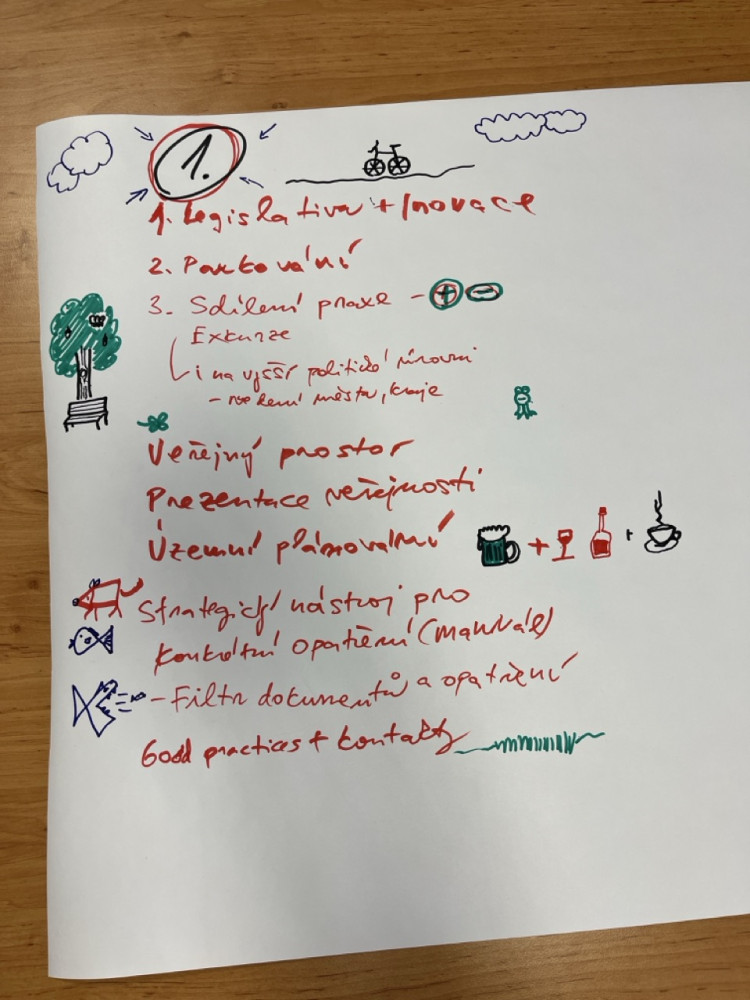 1.
1. Legislativa + Inovace
2. Parkování
3. Sdílení praxe - + -
Exkurze
i na vyšší politické úrovni
- vedení města, kraje
Veřejný prostor
Prezentace veřejnosti
Územní plánování
Strategický nástroj pro
konkrétní opatření (manuál)
- Filtr dokumentů a opatření
Good practices + kontakty